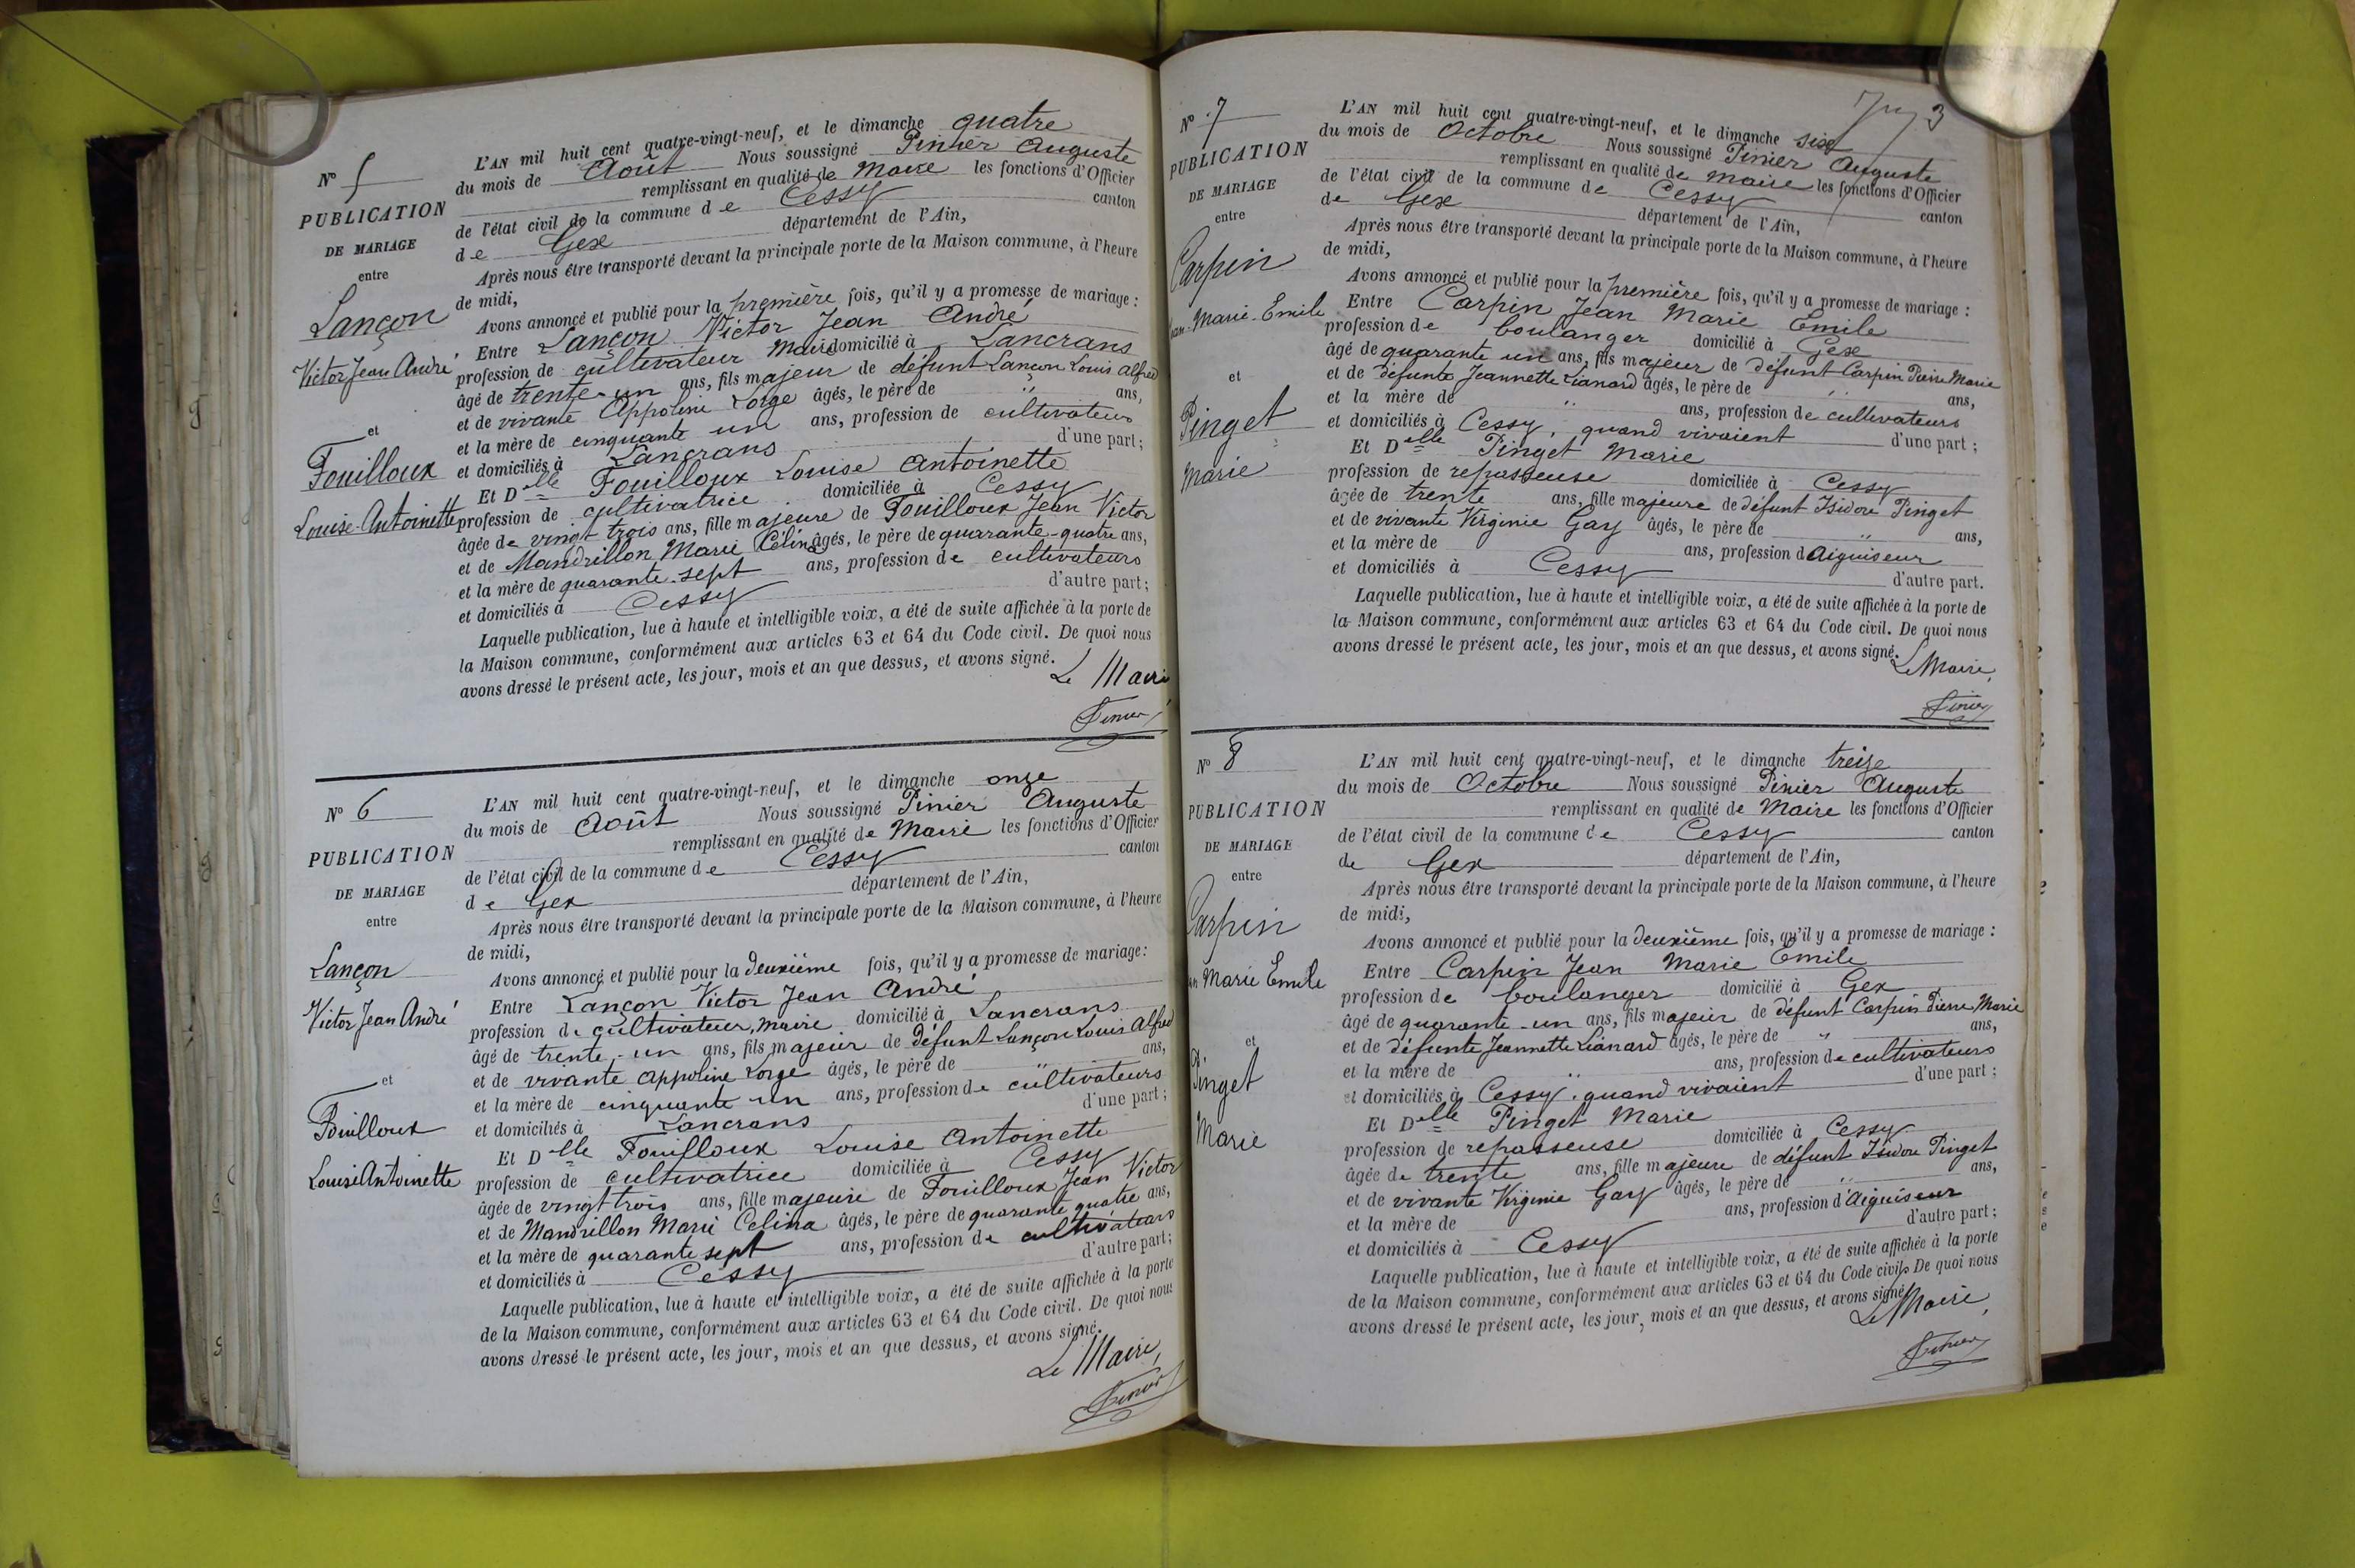 N° 5
PUBLICATION
DE MARIAGE
entre
Lançon
Victor Jean André
et
Fouilloux
Louise-Antoinette
L'AN mil huit cent quatre-vingt-neuf, et le dimanche quatre
du mois de Août Nous soussigné Pinier Auguste
remplissant en qualité de Maire les fonctions d'Officier
de l'état civil de la commune de Cessy canton
de Gex département de l'Ain,
Après nous être transporté devant la principale porte de la Maison commune, à l'heure
de midi,
Avons annoncé et publié pour la première fois, qu'il y a promesse de mariage :
Entre Lançon Victor Jean André
profession de cultivateur Maire domicilié à Lancrans
âgé de trente-un ans, fils majeur de défunt Lançon Louis Alfred
et de vivante Appoline Lorge âgés, le père de " ans,
et la mère de cinquante un ans, profession de cultivateurs
et domiciliés à Lancrans d'une part ;
Et Delle Fouilloux Louise Antoinette
profession de cultivatrice domiciliée à Cessy
âgée de vingt trois ans, fille majeure de Fouilloux Jean Victor
et de Mandrillon Marie Célina âgés, le père de quarante-quatre ans,
et la mère de quarante-sept ans, profession de cultivateurs
et domiciliés à Cessy d'autre part ;
Laquelle publication, lue à haute et intelligible voix, a été de suite affichée à la porte de
la Maison commune, conformément aux articles 63 et 64 du Code civil. De quoi nous
avons dressé le présent acte, les jour, mois et an que dessus, et avons signé.
Le Maire
Pinier
N° 6
PUBLICATION
DE MARIAGE
entre
Lançon
Victor Jean André
et
Fouilloux
Louise Antoinette
L'AN mil huit cent quatre-vingt-neuf, et le dimanche onze
du mois de Août Nous soussigné Pinier Auguste
remplissant en qualité de Maire les fonctions d'Officier
de l'état civil de la commune de Cessy canton
de Gex département de l'Ain,
Après nous être transporté devant la principale porte de la Maison commune, à l'heure
de midi,
Avons annoncé et publié pour la deuxième fois, qu'il y a promesse de mariage :
Entre Lançon Victor Jean André
profession de cultivateur, maire domicilié à Lancrans
âgé de trente-un ans, fils majeur de défunt Lançon Louis Alfred
et de vivante Appoline Lorge âgés, le père de " ans,
et la mère de cinquante un ans, profession de cultivateurs
et domiciliés à Lancrans d'une part ;
Et Delle Fouilloux Louise Antoinette
profession de cultivatrice domiciliée à Cessy
âgée de vingt trois ans, fille majeure de Fouilloux Jean Victor
et de Mandrillon Marie Celina âgés, le père de quarante quatre ans,
et la mère de quarante sept ans, profession de cultivateurs
et domiciliés à Cessy d'autre part ;
Laquelle publication, lue à haute et intelligible voix, a été de suite affichée à la porte
de la Maison commune, conformément aux articles 63 et 64 du Code civil. De quoi nous
avons dressé le présent acte, les jour, mois et an que dessus, et avons signé.
Le Maire,
Pinier
3
N° 7
PUBLICATION
DE MARIAGE
entre
Carpin
Jean-Marie-Emile
et
Pinget
Marie
L'AN mil huit cent quatre-vingt-neuf, et le dimanche six
du mois de Octobre Nous soussigné Pinier Auguste
remplissant en qualité de maire les fonctions d'Officier
de l'état civil de la commune de Cessy canton
de Gex département de l'Ain,
Après nous être transporté devant la principale porte de la Maison commune, à l'heure
de midi,
Avons annoncé et publié pour la première fois, qu'il y a promesse de mariage :
Entre Carpin Jean Marie Emile
profession de boulanger domicilié à Gex
âgé de quarante un ans, fils majeur de défunt Carpin Pierre Marie
et de défunte Jeannette Lianard âgés, le père de " ans,
et la mère de " ans, profession de cultivateurs
et domiciliés à Cessy, quand vivaient d'une part ;
Et Delle Pinget Marie
profession de repasseuse domiciliée à Cessy
âgée de trente ans, fille majeure de défunt Isidore Pinget
et de vivante Virginie Gay âgés, le père de " ans,
et la mère de ans, profession d'Aiguiseur
et domiciliés à Cessy d'autre part.
Laquelle publication, lue à haute et intelligible voix, a été de suite affichée à la porte de
la Maison commune, conformément aux articles 63 et 64 du Code civil. De quoi nous
avons dressé le présent acte, les jour, mois et an que dessus, et avons signé.
Le Maire,
Pinier
N° 8
PUBLICATION
DE MARIAGE
entre
Carpin
Jean Marie Emile
et
Pinget
Marie
L'AN mil huit cent quatre-vingt-neuf, et le dimanche treize
du mois de Octobre Nous soussigné Pinier Auguste
remplissant en qualité de Maire les fonctions d'Officier
de l'état civil de la commune de Cessy canton
de Gex département de l'Ain,
Après nous être transporté devant la principale porte de la Maison commune, à l'heure
de midi,
Avons annoncé et publié pour la deuxième fois, qu'il y a promesse de mariage :
Entre Carpin Jean Marie Emile
profession de boulanger domicilié à Gex
âgé de quarante-un ans, fils majeur de défunt Carpin Pierre Marie
et de défunte Jeannette Lianard âgés, le père de " ans,
et la mère de " ans, profession de cultivateurs
et domiciliés à Cessy, quand vivaient d'une part ;
Et Delle Pinget Marie
profession de repasseuse domiciliée à Cessy
âgée de trente ans, fille majeure de défunt Isidore Pinget
et de vivante Virginie Gay âgés, le père de " ans,
et la mère de ans, profession d'Aiguiseur
et domiciliés à Cessy d'autre part ;
Laquelle publication, lue à haute et intelligible voix, a été de suite affichée à la porte
de la Maison commune, conformément aux articles 63 et 64 du Code civil. De quoi nous
avons dressé le présent acte, les jour, mois et an que dessus, et avons signé.
Le Maire,
Pinier